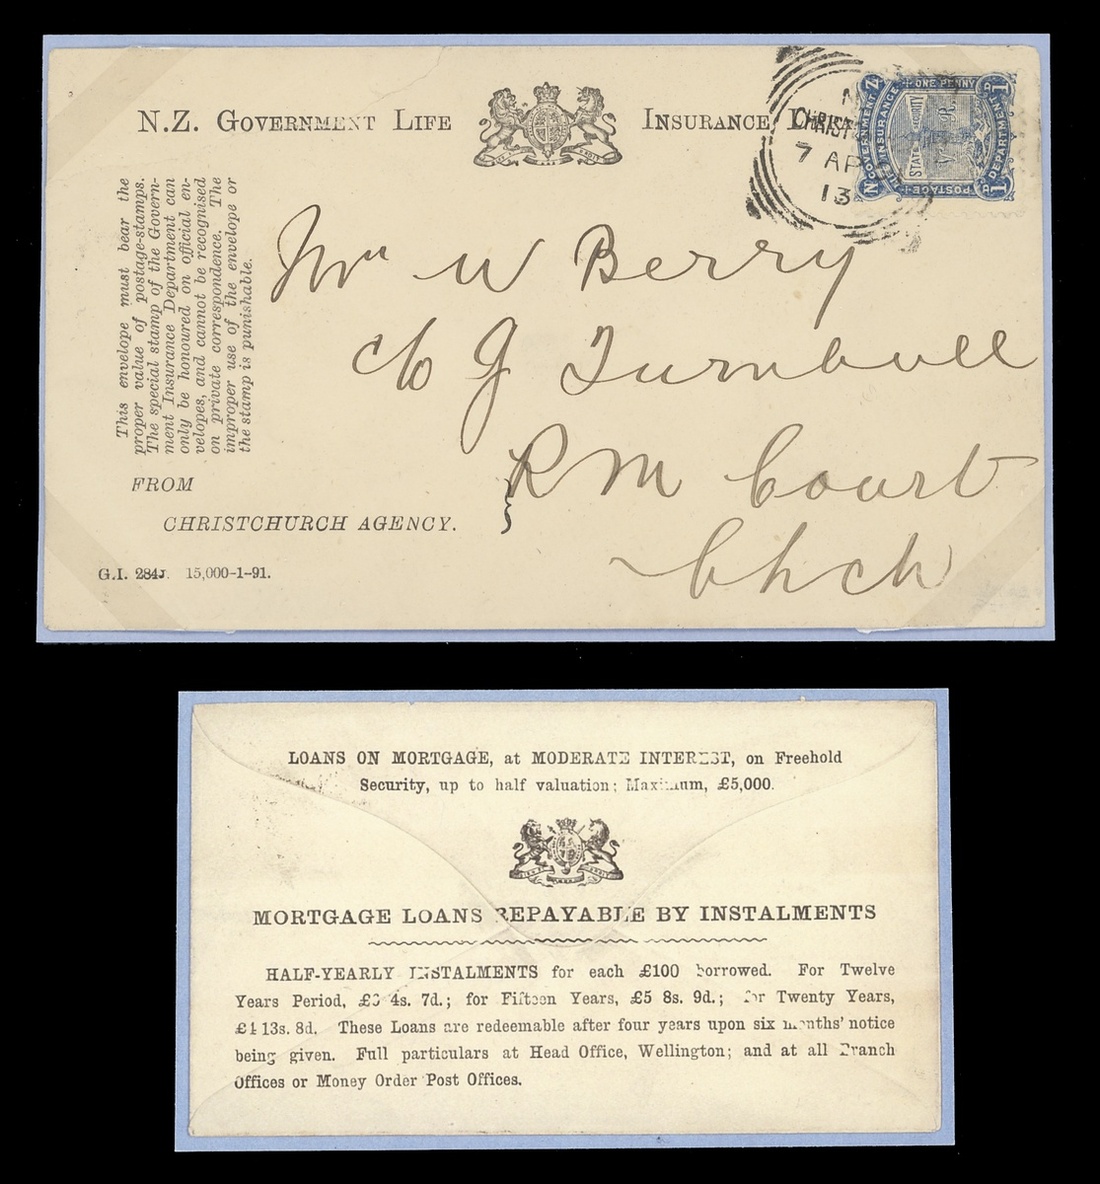 N.Z. GOVERNMENT LIFE INSURANCE
CHRIST
7 AP
13
N Z
GOVERNMENT
LIFE INSURANCE
ONE PENNY
DEPARTMENT
POSTAGE
STATE SECURITY
V R
1D
1D
This envelope must bear the
proper value of postage-stamps.
The special stamp of the Govern-
ment Insurance Department can
only be honoured on official en-
velopes, and cannot be recognised
on private correspondence. The
improper use of the envelope or
the stamp is punishable.
Mr W Berry
c/o G Turnbull
R M Court
Chch
FROM
CHRISTCHURCH AGENCY.
G.I. 284J. 15,000-1-91.
LOANS ON MORTGAGE, at MODERATE INTEREST, on Freehold
Security, up to half valuation; Maximum, £5,000.
MORTGAGE LOANS REPAYABLE BY INSTALMENTS
HALF-YEARLY INSTALMENTS for each £100 borrowed. For Twelve
Years Period, 4s. 7d.; for Fifteen Years, £5 8s. 9d.; for Twenty Years,
£4 13s. 8d. These Loans are redeemable after four years upon six months' notice
being given. Full particulars at Head Office, Wellington; and at all Branch
Offices or Money Order Post Offices.